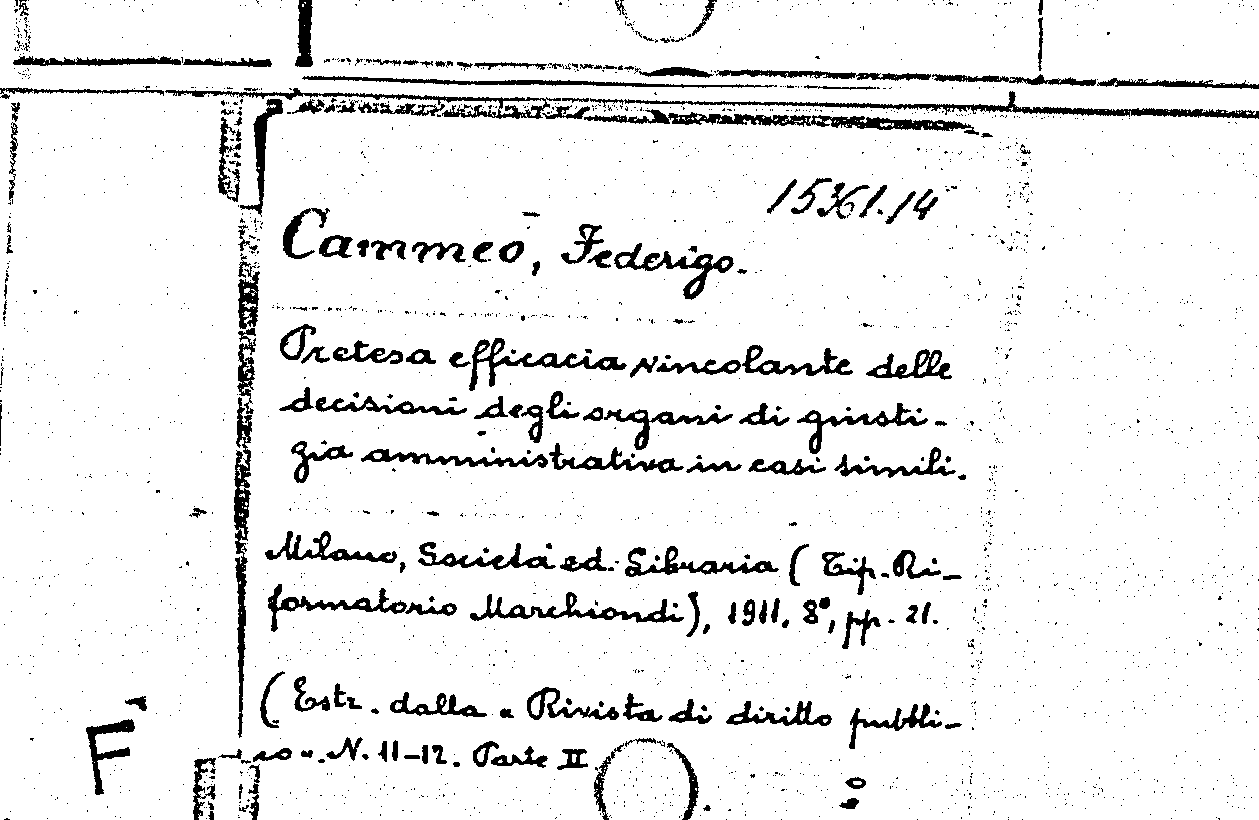 15361.14
Cammeo, Federigo.
Pretesa efficacia vincolante delle
decisioni degli organi di giusti-
zia amministrativa in casi simili.
Milano, Società ed. Libraria (Tip. Ri-
formatorio Marchiondi), 1911. 8°, pp. 21.
(Estr. dalla « Rivista di diritto pubbli-
co ». N. 11-12. Parte II
F